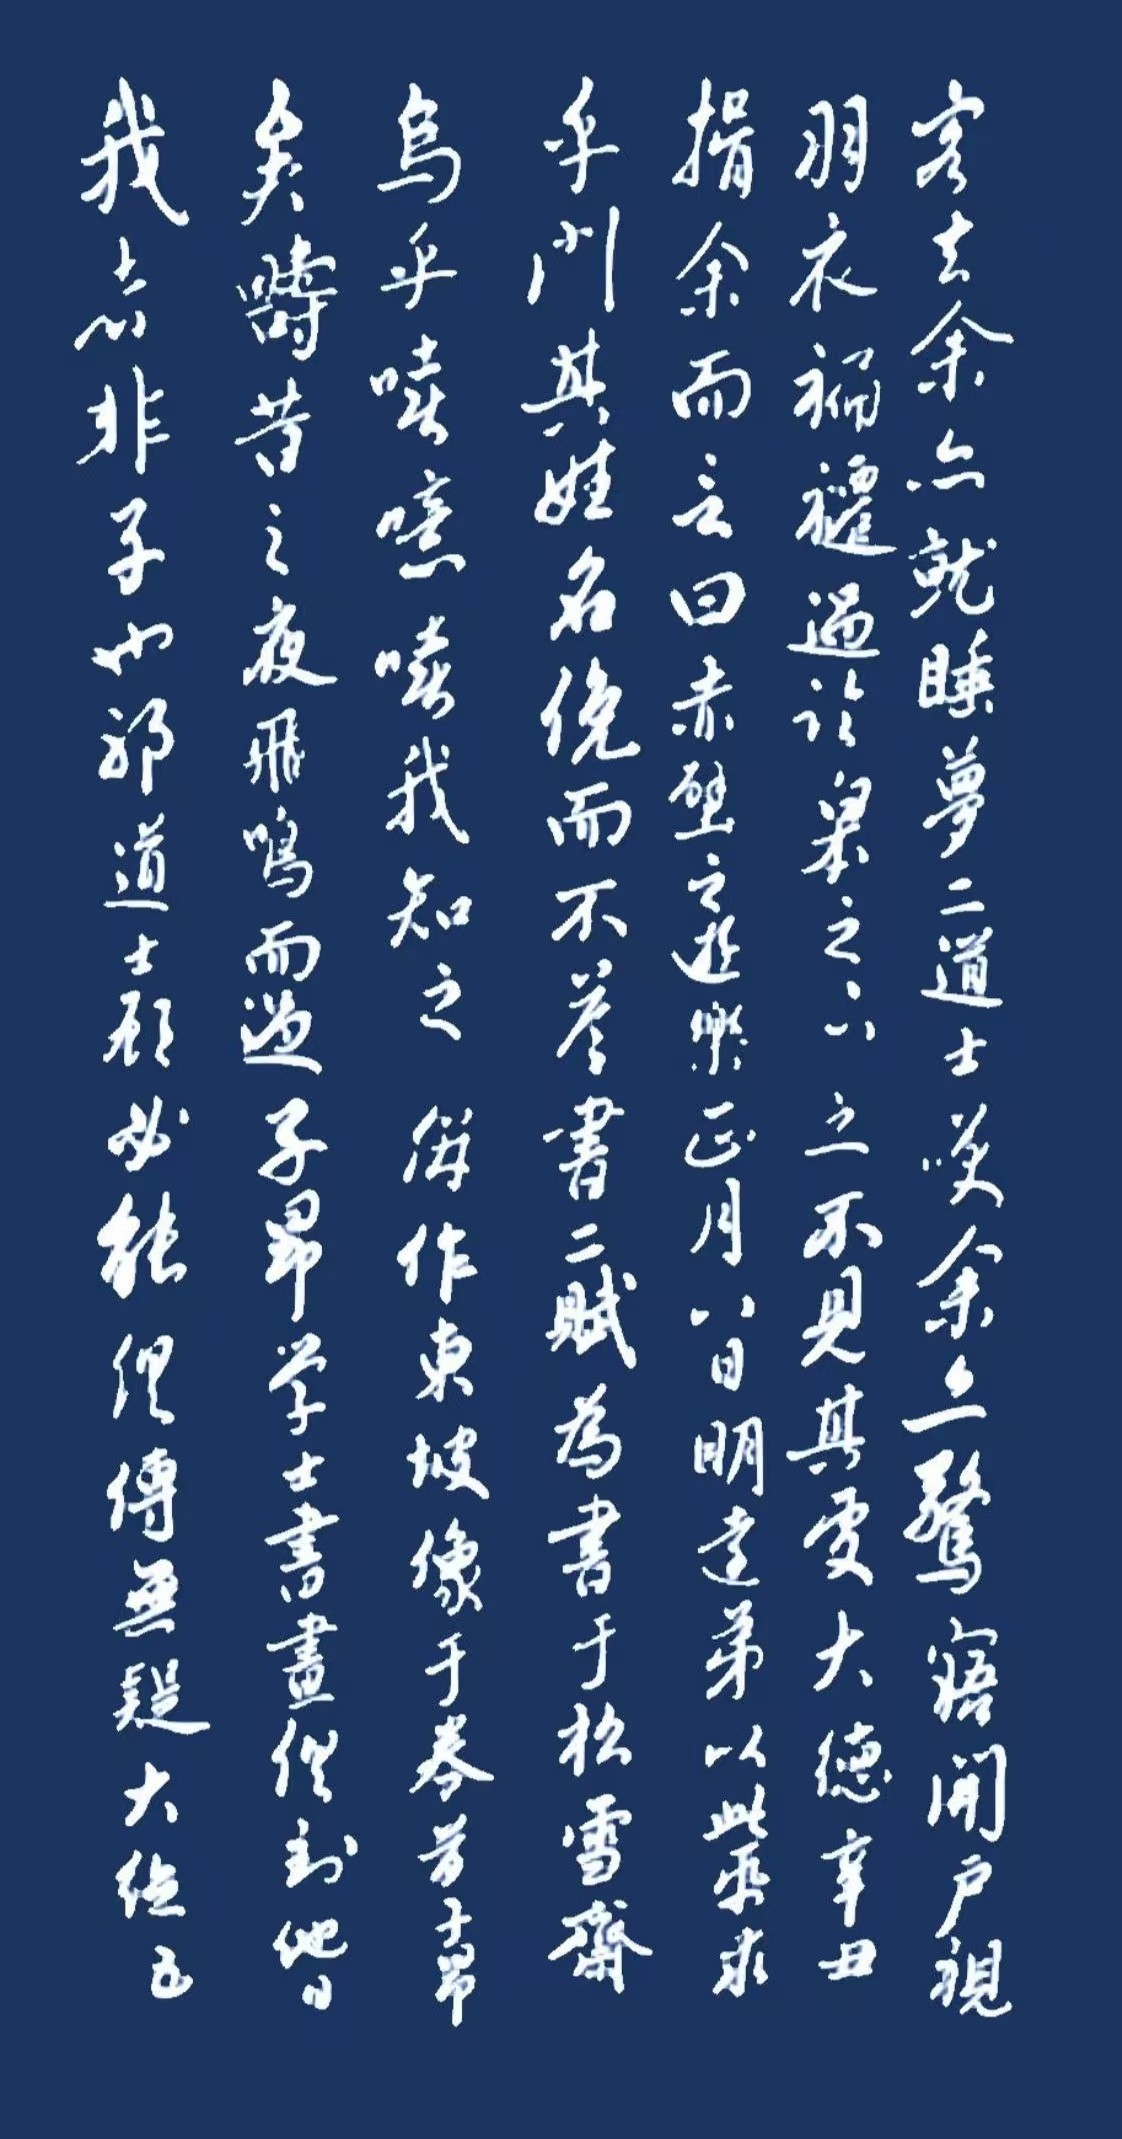 客去余亦就睡夢二道士咲余亦驚寤開戶視
羽衣翩躚過臨皋之下之不見其處大德辛丑
揖余而言曰赤壁之遊樂正月八日明遠弟以此帋求
乎問其姓名俛而不答書二賦為書于松雪齋
烏乎嘻噫嘻我知之併作東坡像于卷首子昂
矣疇昔之夜飛鳴而過子昂学士書畫俱到他日
我者非子也耶道士顧必能俱傳無疑大德五